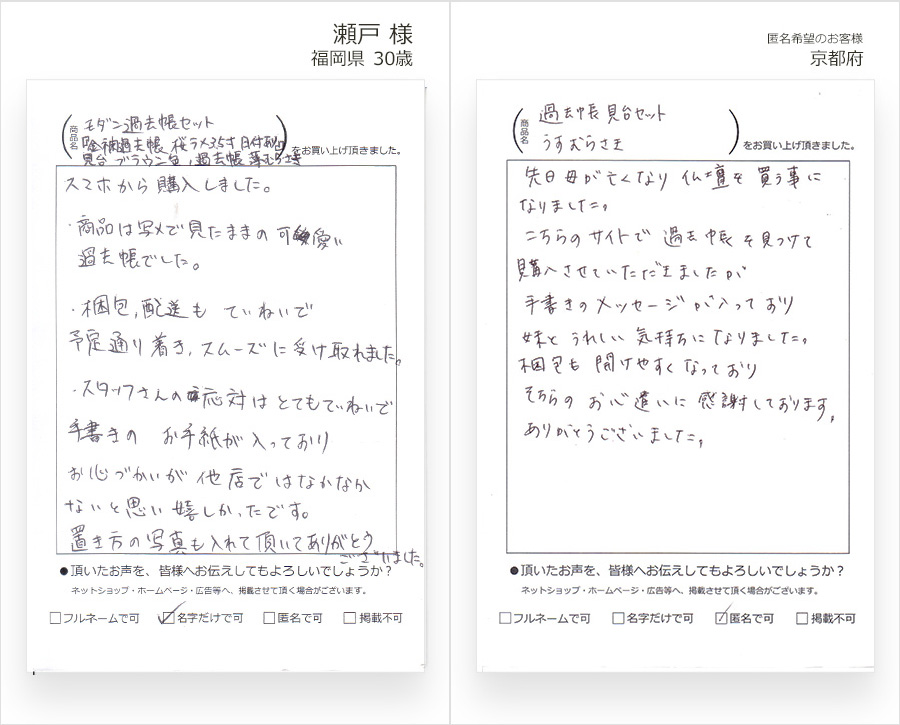 瀬戸 様
福岡県 30歳
商品名
モダン過去帳セット
過去帳 桜ラメ3.5寸 日付あり
見台 ブラウン色, 過去帳 薄むらさき
をお買い上げ頂きました。
スマホから購入しました。
・商品は写メで見たままの可愛い
過去帳でした。
・梱包,配送も ていねいで
予定通り着き、スムーズに受け取れました。
・スタッフさんの応対はとてもていねいで
手書きの お手紙が入っており
お心づかいが他店ではなかなか
ないと思い嬉しかったです。
置き方の写真も入れて頂いてありがとう
ございました。
●頂いたお声を、皆様へお伝えしてもよろしいでしょうか?
ネットショップ・ホームページ・広告等へ、掲載させて頂く場合がございます。
□フルネームで可 ☑名字だけで可 □匿名で可 □掲載不可
匿名希望のお客様
京都府
商品名
過去帳見台セット
うすむらさき
をお買い上げ頂きました。
先日母が亡くなり 仏壇を買う事に
なりました。
こちらのサイトで 過去帳を見つけて
購入させていただきましたが
手書きのメッセージが入っており
妹とうれしい気持ちになりました。
梱包も開けやすくなっており
そちらのお心遣いに感謝しております。
ありがとうございました。
●頂いたお声を、皆様へお伝えしてもよろしいでしょうか?
ネットショップ・ホームページ・広告等へ、掲載させて頂く場合がございます。
□フルネームで可 □名字だけで可 ☑匿名で可 □掲載不可